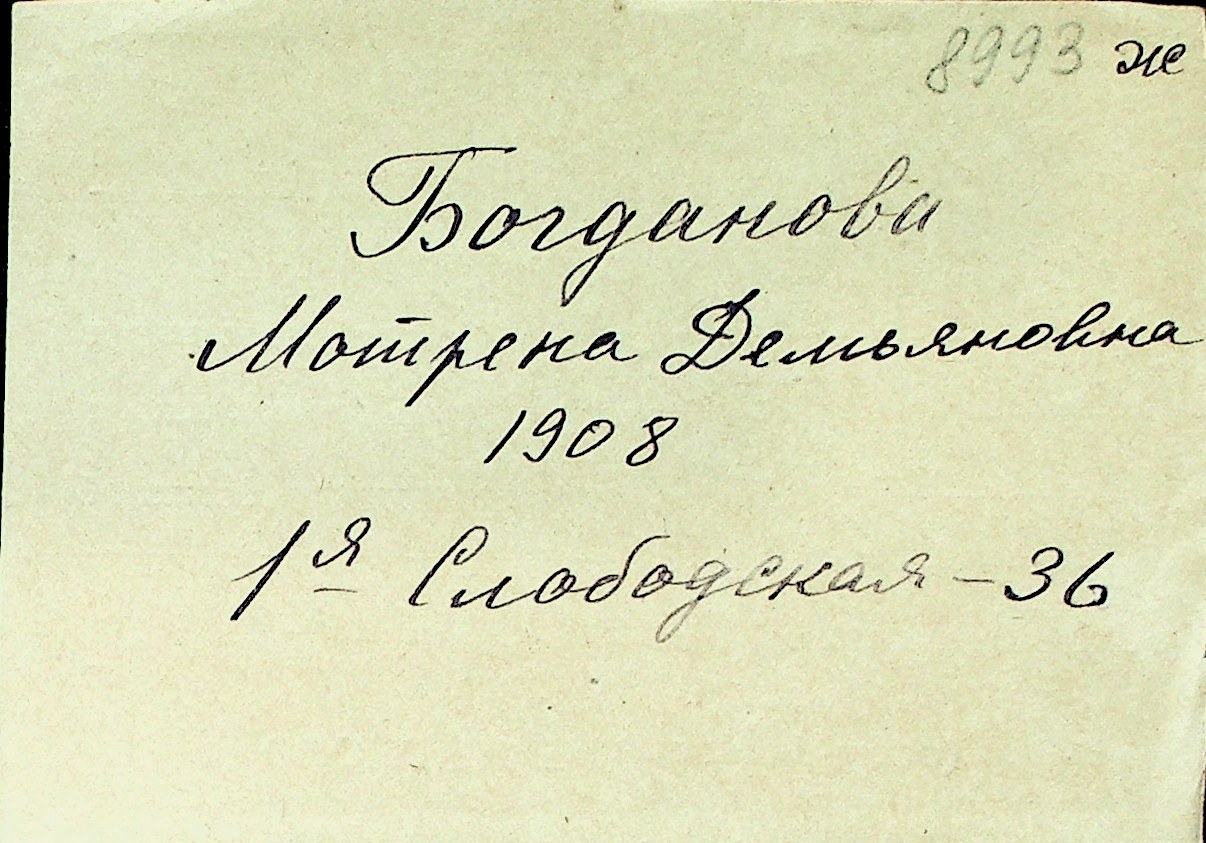 8993 ж
Богданова
Мотрена Демьяновна
1908
1я Слободская - 36